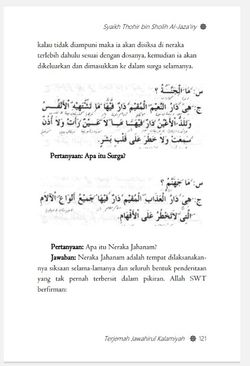 Syaikh Thohir bin Sholih Al-Jaza'iry
kalau tidak diampuni maka ia akan disiksa di neraka
terlebih dahulu sesuai dengan dosanya, kemudian ia akan
dikeluarkan dan dimasukkan ke dalam surga selamanya.
س : مَا الْجَنَّةُ ؟
ج : هِيَ دَارُ النَّعِيْمِ الْمُقِيْمِ دَارٌ فِيْهَا مَا تَشْتَهِيْهِ الْأَنْفُسُ
وَتَلَذُّ الْأَعْيُنُ دَارٌ فِيْهَا مَا لَا عَيْنٌ رَأَتْ وَلَا أُذُنٌ
سَمِعَتْ وَلَا خَطَرَ عَلَى قَلْبِ بَشَرٍ.
Pertanyaan: Apa itu Surga?
س : مَا جَهَنَّمُ ؟
ج : هِيَ دَارُ الْعَذَابِ الْمُقِيْمِ دَارٌ فِيْهَا جَمِيْعُ أَنْوَاعِ الْآلَامِ
الَّتِي لَا تَخْطُرُ عَلَى الْأَفْهَامِ.
Pertanyaan: Apa itu Neraka Jahanam?
Jawaban: Neraka Jahanam adalah tempat dilaksanakan-
nya siksaan selama-lamanya dan seluruh bentuk penderitaan
yang tak pernah terbersit dalam pikiran. Allah SWT
berfirman:
Terjemah Jawahirul Kalamiyah 121